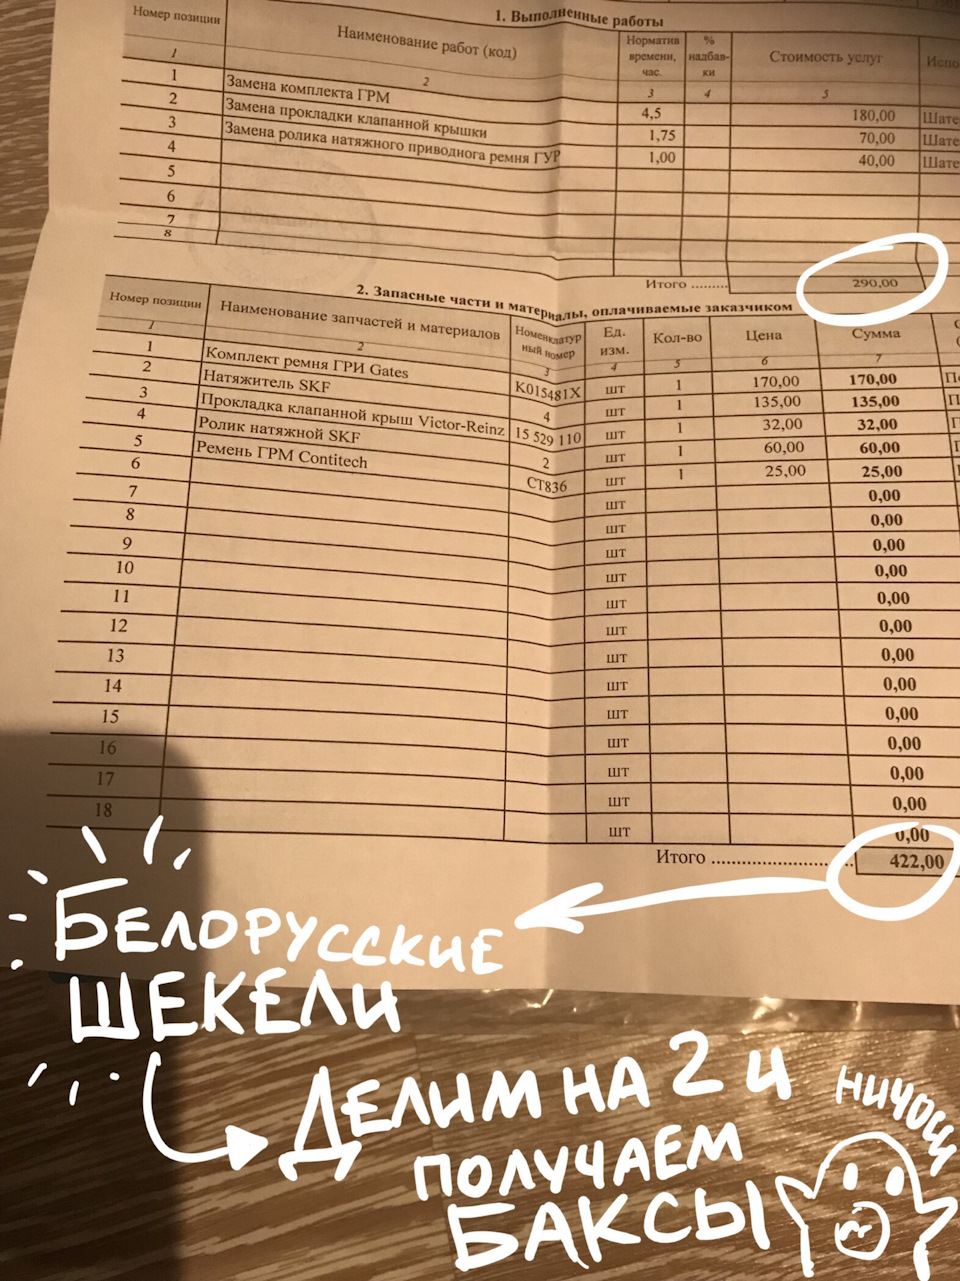 1. Выполненные работы
Номер позиции Наименование работ (код) Норматив времени, час. % надбав-ки Стоимость услуг Испо
1 2 3 4 5
1 Замена комплекта ГРМ 4,5 180,00 Шате
2 Замена прокладки клапанной крышки 1,75 70,00 Шате
3 Замена ролика натяжного приводнога ремня ГУР 1,00 40,00 Шате
4
5
6
7
8
Итого ......... 290,00
2. Запасные части и материалы, оплачиваемые заказчиком
Номер позиции Наименование запчастей и материалов Номенклатурный номер Ед. изм. Кол-во Цена Сумма
1 2 3 4 5 6 7
1 Комплект ремня ГРИ Gates K015481X шт 1 170,00 170,00
2 Натяжитель SKF 4 шт 1 135,00 135,00
3 Прокладка клапанной крыш Victor-Reinz 15 529 110 шт 1 32,00 32,00
4 Ролик натяжной SKF 2 шт 1 60,00 60,00
5 Ремень ГРМ Contitech CT836 шт 1 25,00 25,00
6 шт 0,00
7 шт 0,00
8 шт 0,00
9 шт 0,00
10 шт 0,00
11 шт 0,00
12 шт 0,00
13 шт 0,00
14 шт 0,00
15 шт 0,00
16 шт 0,00
17 шт 0,00
18 шт 0,00
Итого ......................... 422,00
БЕЛОРУССКИЕ
ШЕКЕЛИ
ДЕЛИМ НА 2 И
ПОЛУЧАЕМ
БАКСЫ
НИЧОСИ